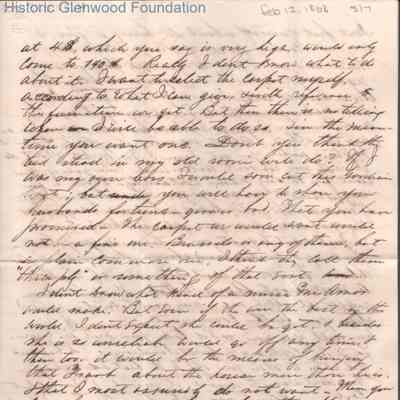 Historic Glenwood Foundation
Feb 12, 1868
at 4$, which you say is very high, would only
come to 140$. Really I don't know what to do
about it. I want to select the carpet myself,
according to what I can give, & with reference to
the furniture we get. But then there is no telling
when I will be able to do so. In the mean-
time you want one. Don't you think the
in my old room will do? If I
was my own boss I would soon cut this Gordian
knot, but you will have to show your
husbands
promised. The carpet we would want would
not be a fine one. Brussels or any of these, but
a plain common one. I think they call them
"Three ply" or something of that sort.
I don't know what kind of a nurse
would make. But even if she was the best in the
world I don't expect she could be got, & besides
she is so unreliable would go off any time, &
then too it would be the means of bringing
that Frank about the house more than he is.
& that I most assuredly do not want. When you